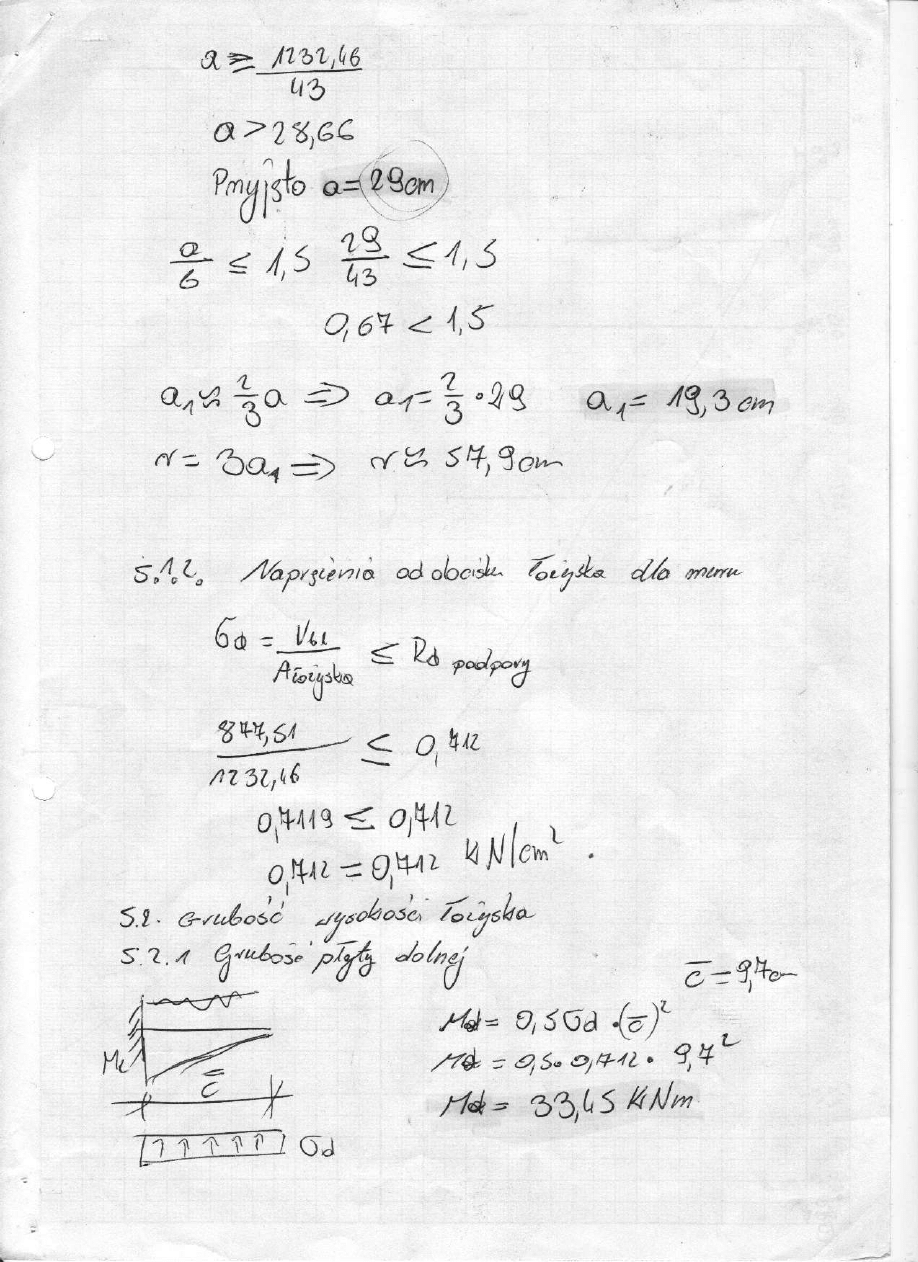 a ≥ 1232,46 / 43
a > 28,66
Przyjęto a = 29cm
a/b ≤ 1,5 29/43 ≤ 1,5
0,67 < 1,5
a₁ ≈ 2/3 a ⇒ a₁ = 2/3 · 29 a₁ = 19,3 cm
r = 3a₁ ⇒ r ≈ 57,9cm
5.1.2. Naprężenia od docisku łożyska dla muru
σd = Vbl / Ałożyska ≤ Rd podpory
877,51 / 1232,46 ≤ 0,712
0,7119 ≤ 0,712
0,712 = 0,712 kN/cm² .
5.2. Grubość wysokości łożyska
5.2.1 Grubość płyty dolnej
c̅ = 9,7cm
Md = 0,5 σd · (c̅)²
Md = 0,5 · 0,712 · 9,7²
Md = 33,45 kNm
c̅
σd